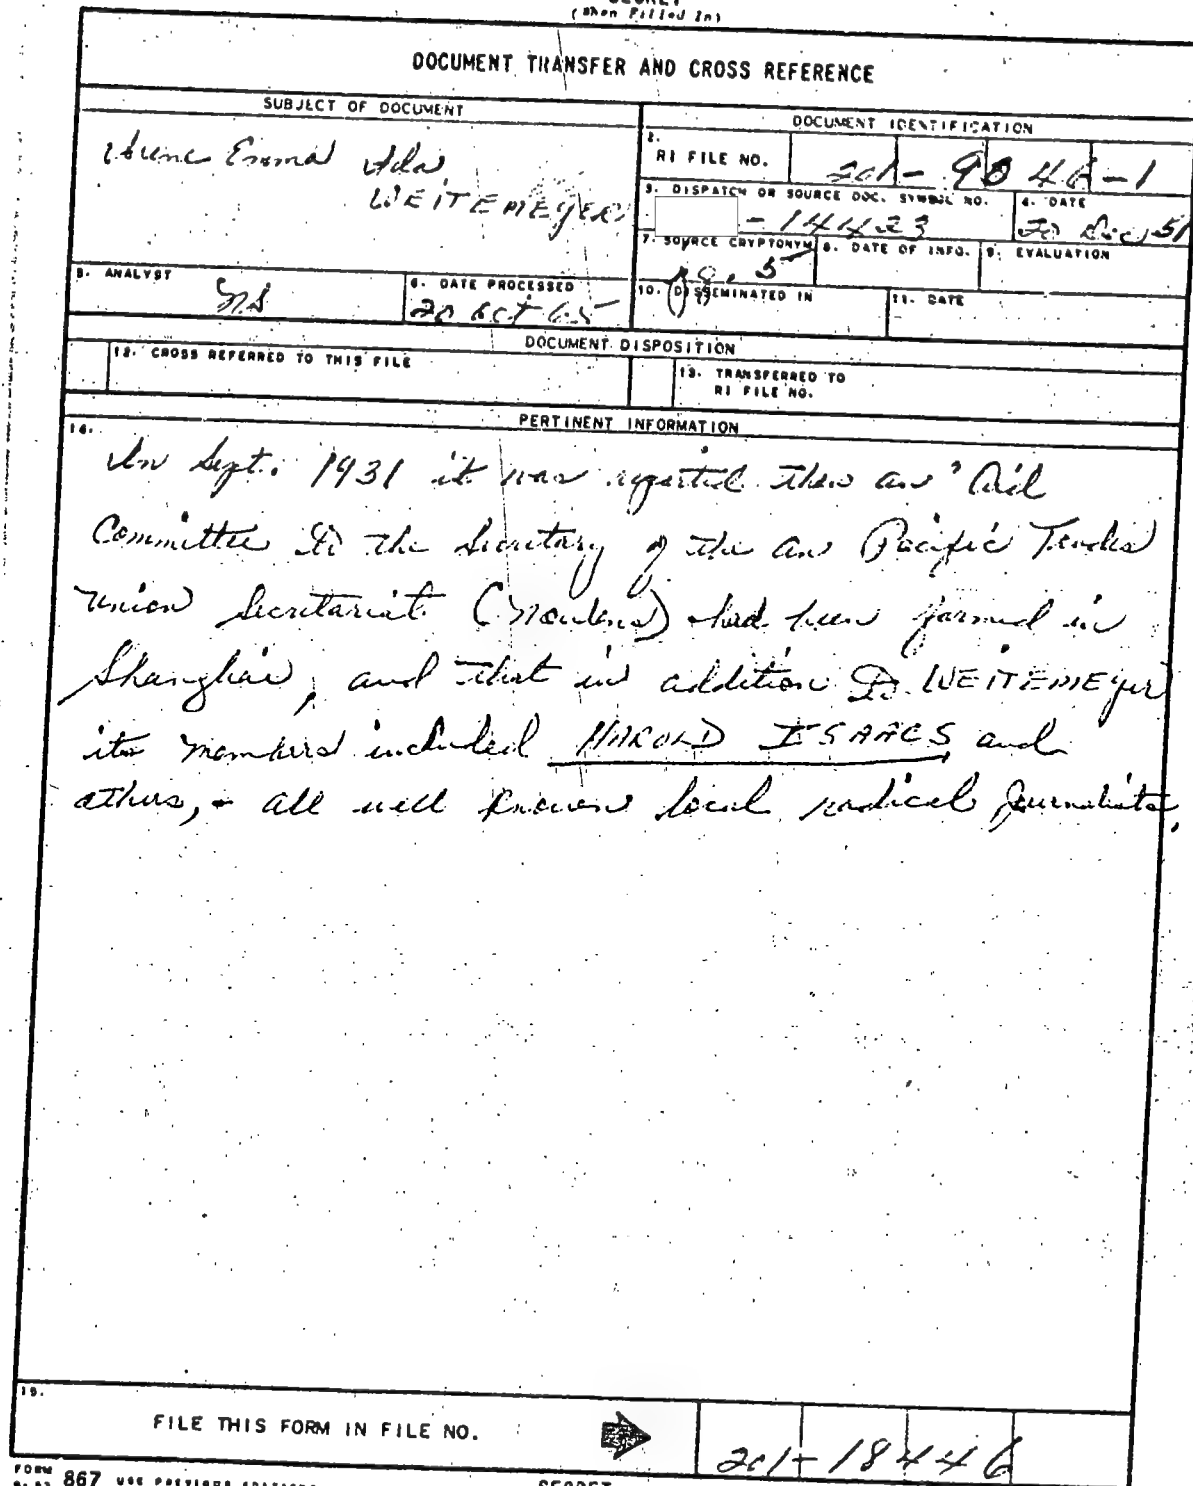 SECRET
(When Filled In)
DOCUMENT TRANSFER AND CROSS REFERENCE
SUBJECT OF DOCUMENT
DOCUMENT IDENTIFICATION
Emma Ada
WEITEMEYER
2.
RI FILE NO.
201-9046-1
3. DISPATCH OR SOURCE DOC. SYMBOL NO.
-14423
4. DATE
20 Dec 51
7. SOURCE CRYPTONYM
8. DATE OF INFO.
9. EVALUATION
pg. 5
5. ANALYST
6. DATE PROCESSED
20 Oct 65
10. DISSEMINATED IN
11. DATE
DOCUMENT DISPOSITION
12. CROSS REFERRED TO THIS FILE
13. TRANSFERRED TO
RI FILE NO.
PERTINENT INFORMATION
14.
In Sept. 1931 it was reported that an "Aid
Committee to the Secretary of the Pacific Trades
Union Secretariat (Noulens) had been formed in
Shanghai, and that in addition to WEITEMEYER
its members included HAROLD ISAACS and
others, - all well known local radical journalists.
15.
FILE THIS FORM IN FILE NO.
201-18446
FORM 867 USE PREVIOUS EDITIONS
SECRET